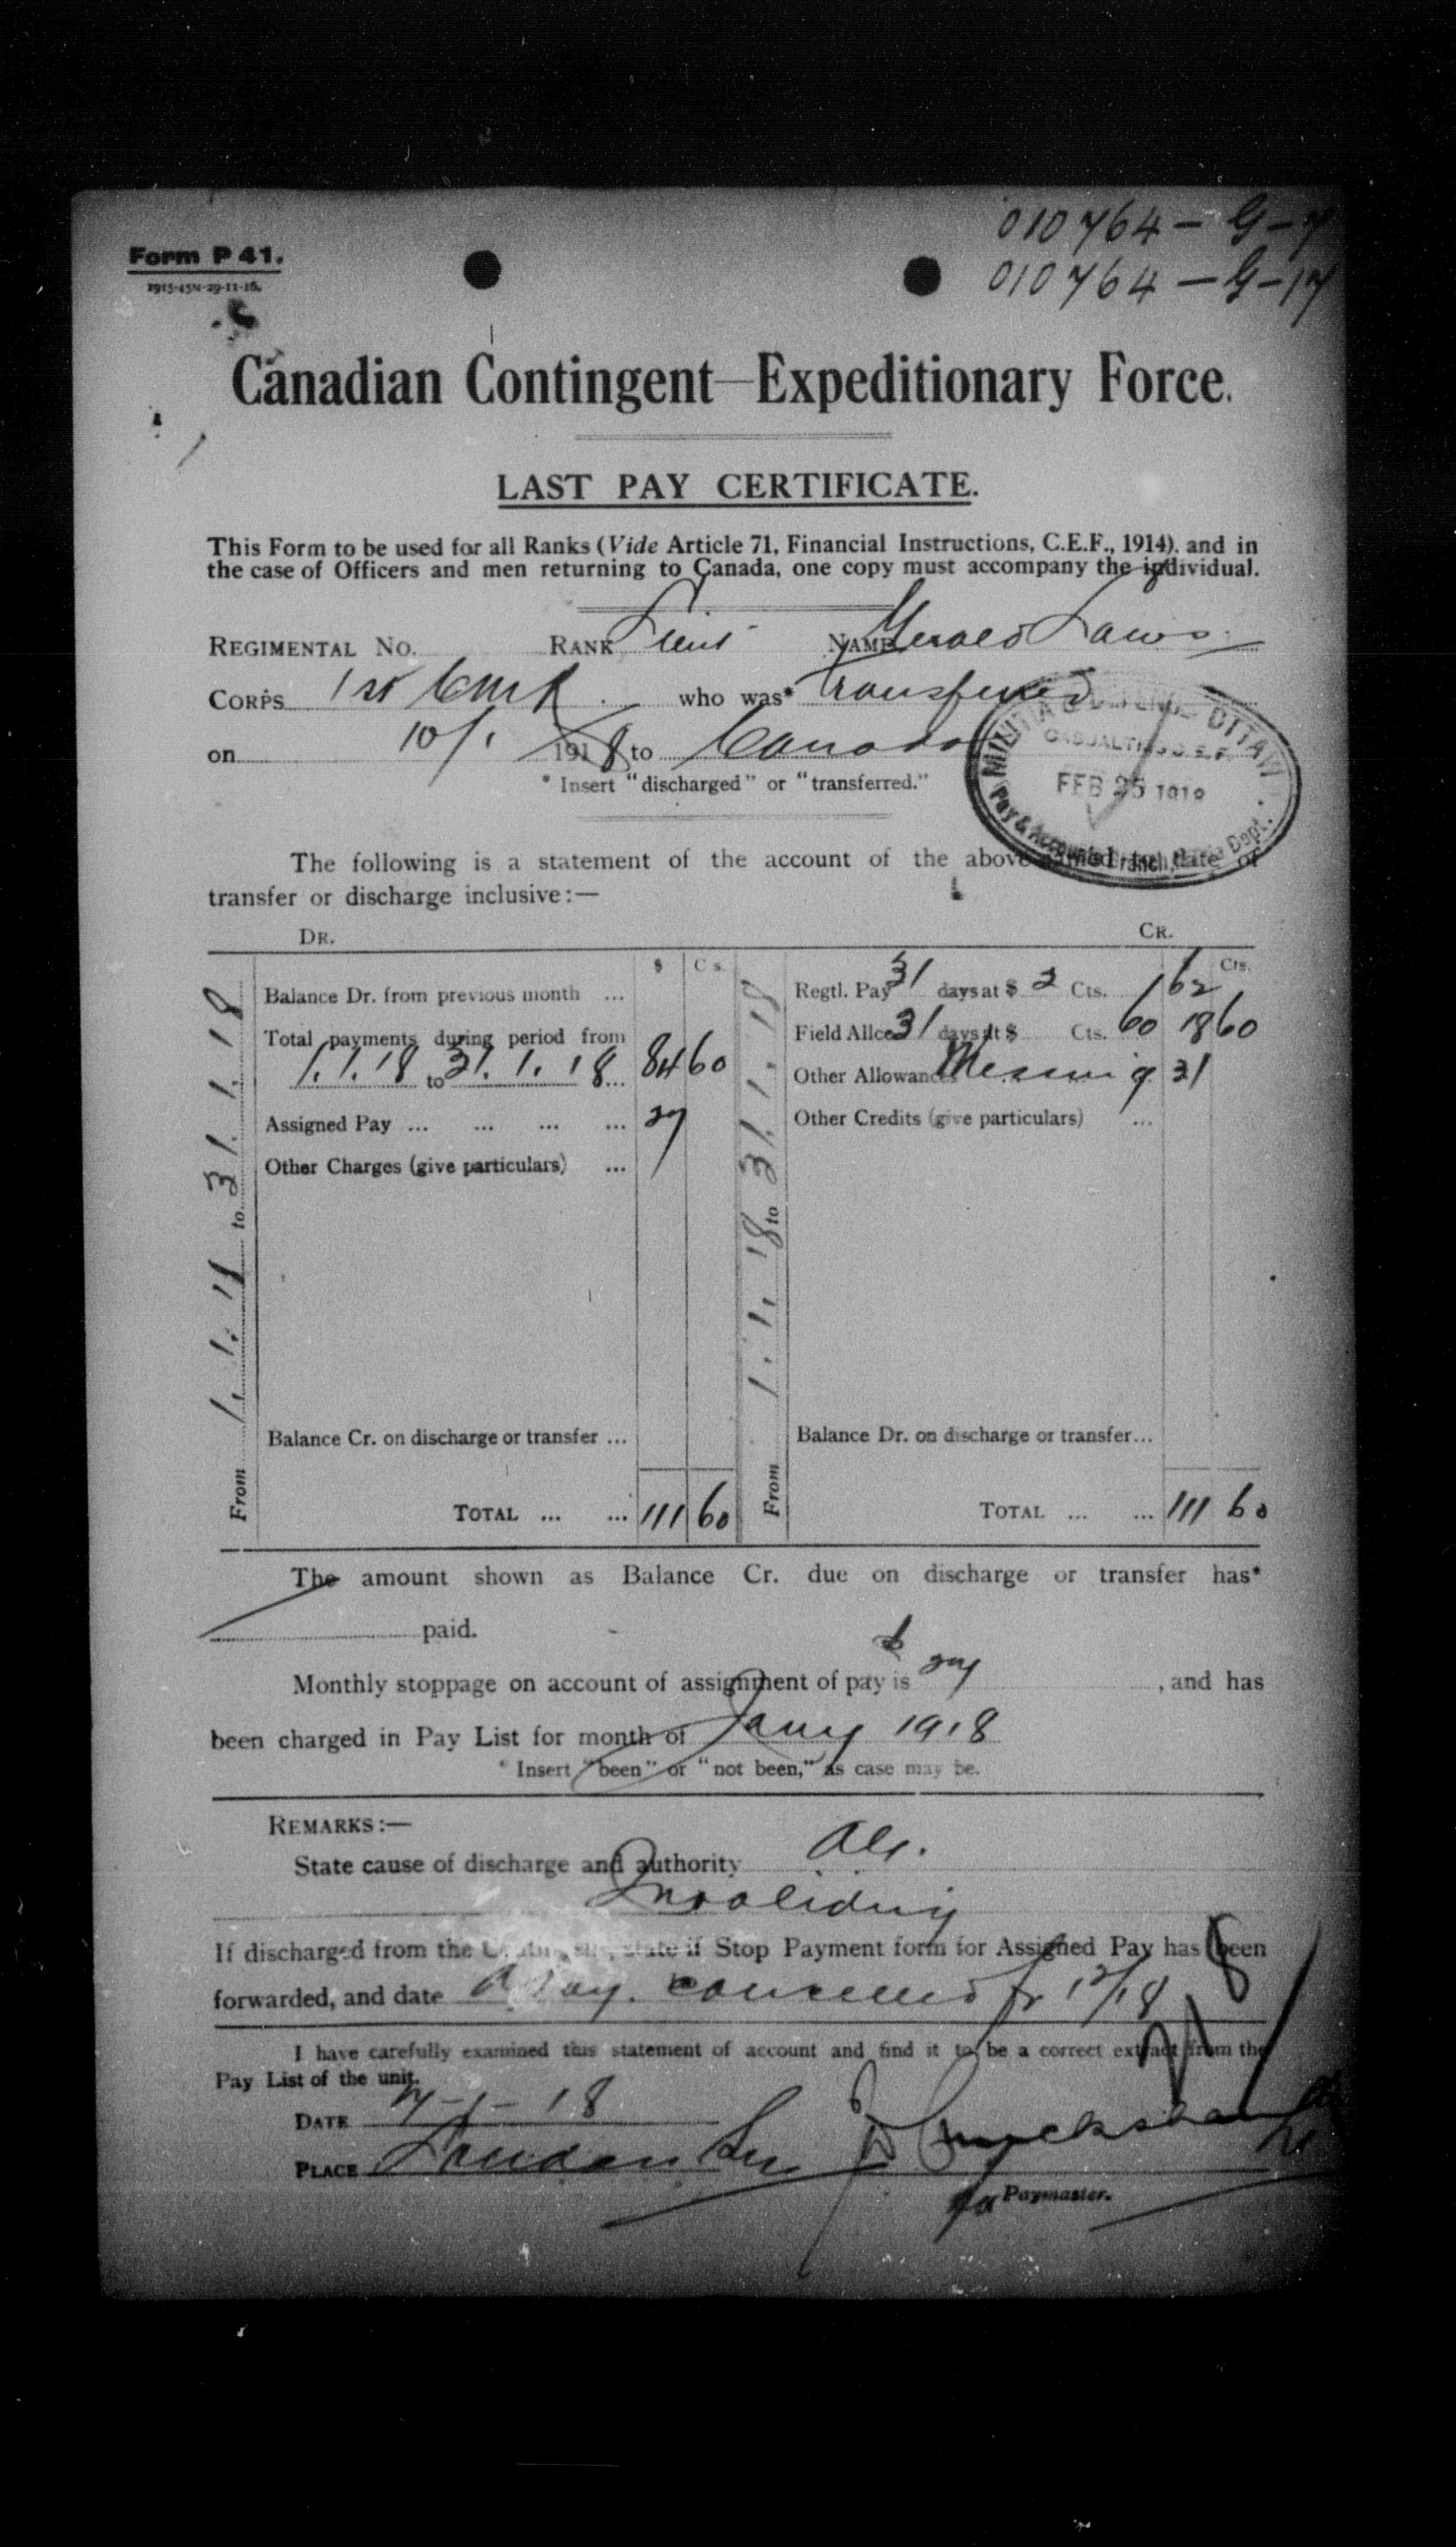 010764 - G - 7
010764 - G - 17
Form P 41.
1915-45M-29-11-16.
Canadian Contingent—Expeditionary Force.
LAST PAY CERTIFICATE.
This Form to be used for all Ranks (Vide Article 71, Financial Instructions, C.E.F., 1914), and in
the case of Officers and men returning to Canada, one copy must accompany the individual.
REGIMENTAL NO. RANK Lieut NAME Gerald Laws
CORPS 1st CMR who was* Transferred
on 10/1 1918 to Canada
* Insert "discharged" or "transferred."
MILITIA & DEFENCE OTTAWA
CASUALTIES C.E.F.
FEB 25 1918
Pay & Accounts Branch, Dept.
The following is a statement of the account of the above named to date of
transfer or discharge inclusive:—
DR. CR.
$ Cs. $ Cts.
From 1. 1. 18 to 31. 1. 18
Balance Dr. from previous month ...
Total payments during period from
1. 1. 18 to 31. 1. 18 ... 84 60
Assigned Pay ... ... ... ... 27
Other Charges (give particulars) ...
Balance Cr. on discharge or transfer ...
TOTAL ... ... 111 60
From 1. 1. 18 to 31. 1. 18
Regtl. Pay 31 days at $ 2 Cts. 62
Field Allce 31 days at $ Cts. 60 18 60
Other Allowances Messing 31
Other Credits (give particulars) ...
Balance Dr. on discharge or transfer...
TOTAL ... ... 111 60
The amount shown as Balance Cr. due on discharge or transfer has*
paid.
Monthly stoppage on account of assignment of pay is $ 27, and has
been charged in Pay List for month of Jany 1918
* Insert "been" or "not been," as case may be.
REMARKS:—
State cause of discharge and authority
Invaliding
If discharged from the state if Stop Payment form for Assigned Pay has been
forwarded, and date A Pay. cancelled fr 1/2/18
I have carefully examined this statement of account and find it to be a correct extract from the
Pay List of the unit.
DATE 7-1-18
PLACE London
Paymaster.